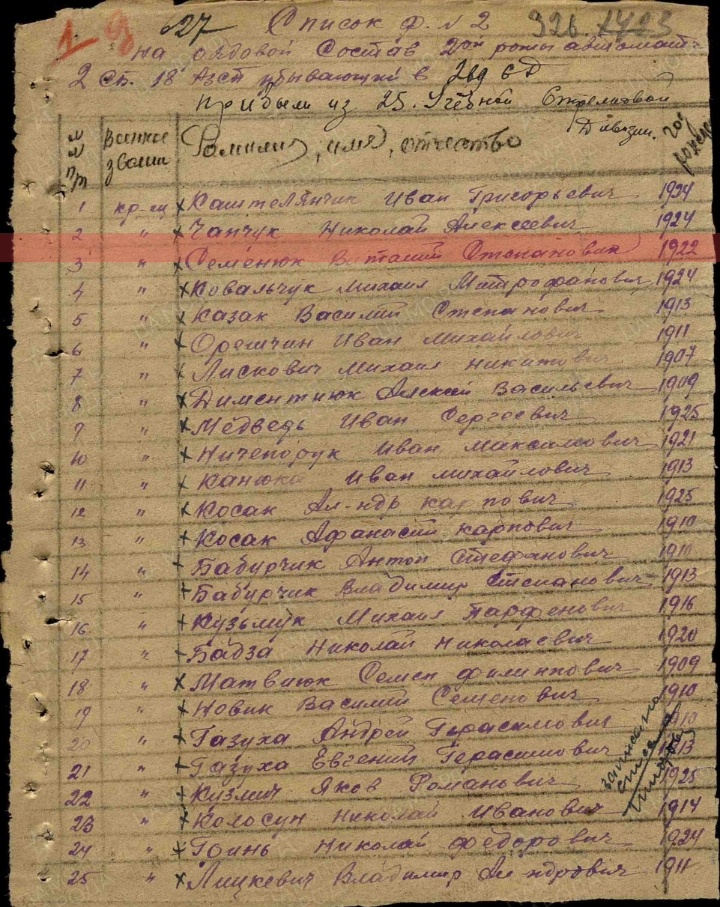 1 27 Список ф. N 2 326. 1423
на рядовой Состав 2ой роты автомат.
2 сб. 18 Азсп убывающий в 2вд СД
Прибыли из 25. Учебной Стрелковой Дивизии.
№№ пп Военное звание Фамилия, имя, отчество год рожд
1 кр-ец Каштелянчик Иван Григорьевич 1924
2 " Чапчук Николай Алексеевич 1924
3 " Семенюк Виталий Степанович 1922
4 " Ковальчук Михаил Митрофанович 1924
5 " Казак Василий Степанович 1913
6 " Оремчин Иван Михайлович 1911
7 " Лискович Михаил Никитович 1907
8 " Диментиюк Алексей Васильевич 1909
9 " Медведь Иван Сергеевич 1925
10 " Ничепорук Иван Максимович 1921
11 " Канюка Иван Михайлович 1913
12 " Косак Ал-ндр Карпович 1925
13 " Косак Афанасий Карпович 1910
14 " Бабирчик Антон Стефанович 1911
15 " Бабирчик Владимир Степанович 1913
16 " Кузьмук Михаил Парфенович 1916
17 " Бадза Николай Николаевич 1920
18 " Матвиюк Семен Филиппович 1909
19 " Новик Василий Семенович 1910
20 " Газуха Андрей Герасимович 1910
21 " Газуха Евгений Герасимович 1913
22 " Кузмич Яков Романович 1925
23 " Колосун Николай Иванович 1914
24 " Гринь Николай Федорович 1924
25 " Лицкевич Владимир Ал-ндрович 1911
записано